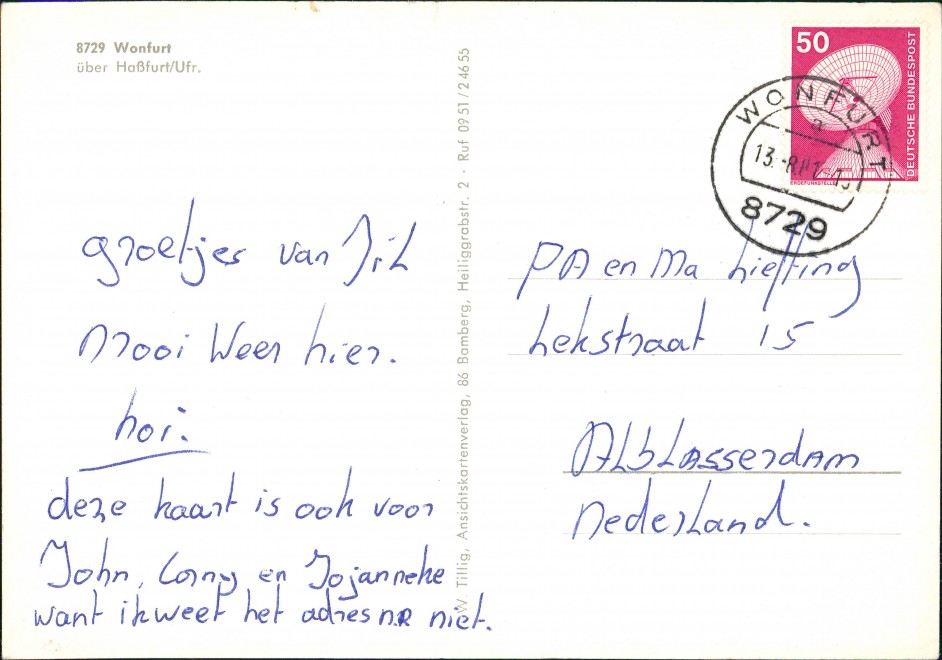 8729 Wonfurt
über Haßfurt/Ufr.
groetjes van Jil
Mooi Weer hier.
hoi.
deze kaart is ook voor
John, Corny en Jojanneke
want ik weet het adres n.R niet.
W. Tillig, Ansichtskartenverlag, 86 Bamberg, Heiliggrabstr. 2 · Ruf 09 51 / 2 46 55
50
DEUTSCHE BUNDESPOST
ERDEFUNKSTELLE
WONFURT
a
13.
8729
PA en Ma Liefting
Lekstraat 15
ALbLasserdam
Nederland.